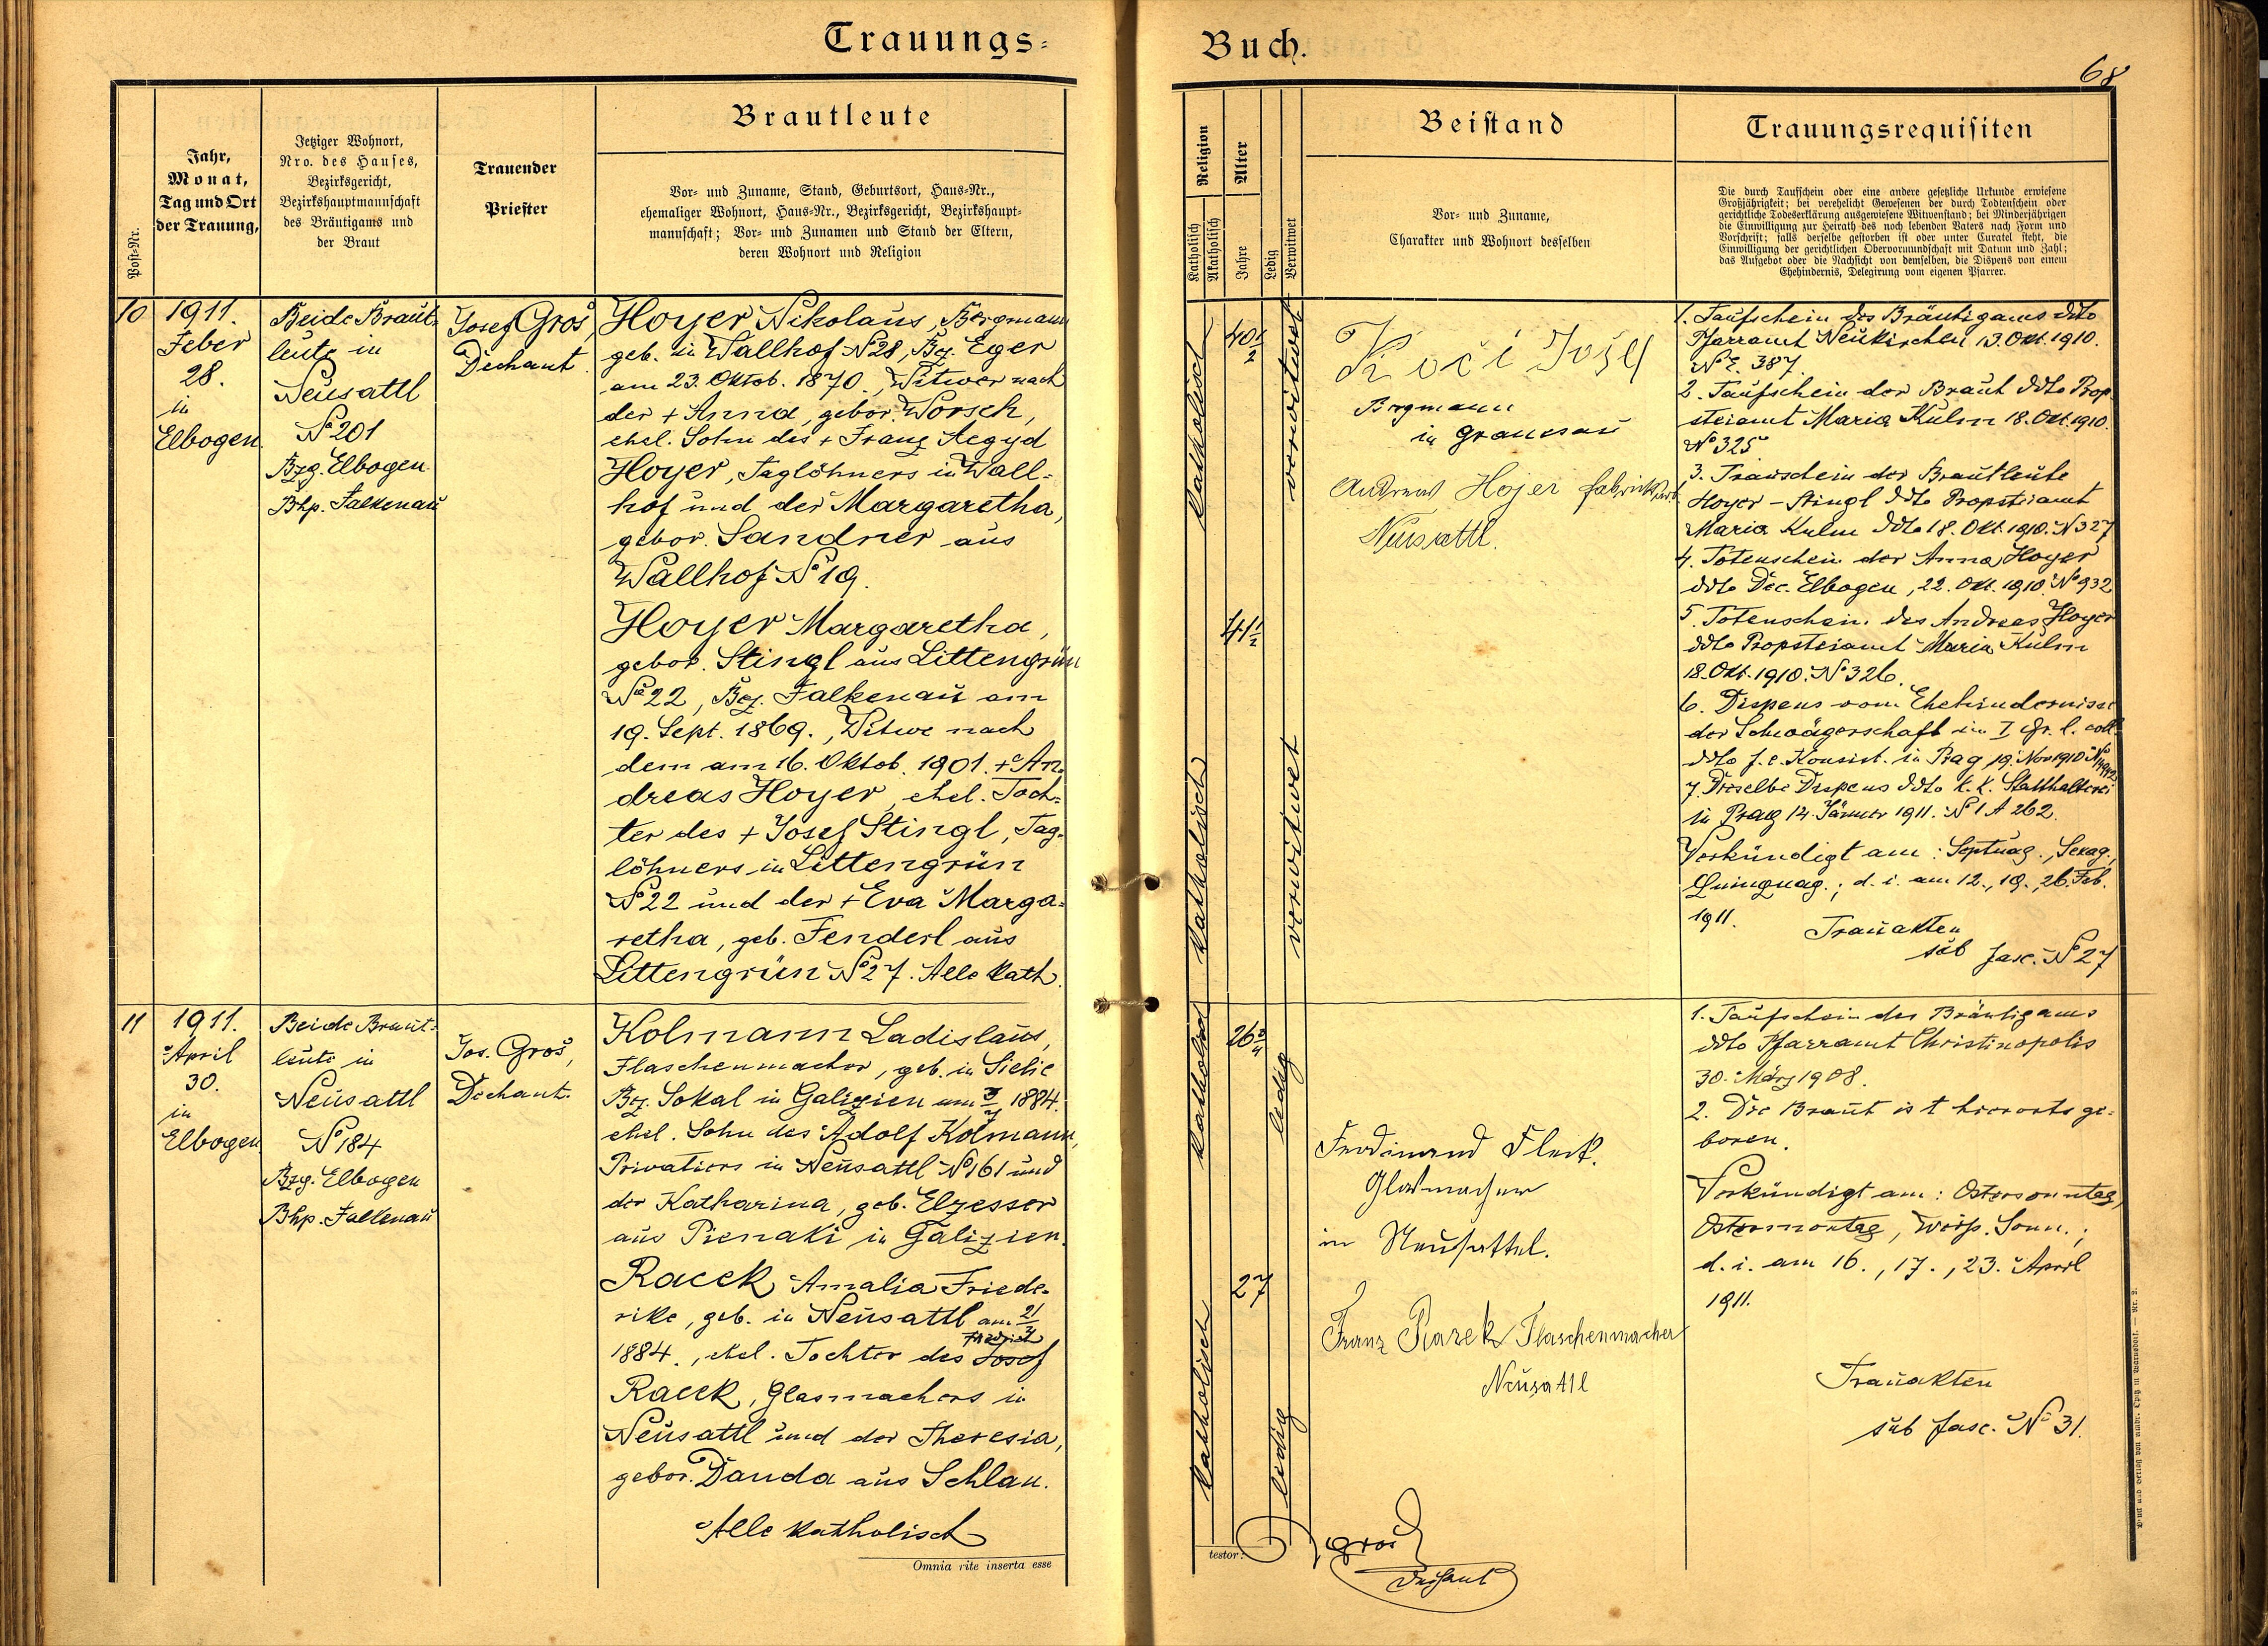 Trauungs-
Buch.
68
Post-Nr.
Jahr,
Monat,
Tag und Ort
der Trauung,
Jetziger Wohnort,
Nro. des Hauses,
Bezirksgericht,
Bezirkshauptmannschaft
des Bräutigams und
der Braut
Trauender
Priester
Brautleute
Vor- und Zuname, Stand, Geburtsort, Haus-Nr.,
ehemaliger Wohnort, Haus-Nr., Bezirksgericht, Bezirkshaupt-
mannschaft; Vor- und Zunamen und Stand der Eltern,
deren Wohnort und Religion
Religion
Katholisch
Akatholisch
Alter
Jahre
Ledig
Verwitwet
Beistand
Vor- und Zuname,
Charakter und Wohnort desselben
Trauungsrequisiten
Die durch Taufschein oder eine andere gesetzliche Urkunde erwiesene
Großjährigkeit; bei verehelicht Gewesenen der durch Todtenschein oder
gerichtliche Todeserklärung ausgewiesene Witwenstand; bei Minderjährigen
die Einwilligung zur Heirath des noch lebenden Vaters nach Form und
Vorschrift; falls derselbe gestorben ist oder unter Curatel steht, die
Einwilligung der gerichtlichen Obervormundschaft mit Datum und Zahl;
das Aufgebot oder die Nachsicht von demselben, die Dispens von einem
Ehehindernis, Delegirung vom eigenen Pfarrer.
10
1911.
Feber
28.
in
Elbogen
Beide Braut-
leute in
Neusattl
No 201
Bzg. Elbogen
Bhp. Falkenau
Josef Groš,
Dechant
Hoyer Nikolaus, Bergmann
geb. in Wallhof No 28, Bez. Eger
am 23. Oktob. 1870., Witwer nach
der + Anna, gebor. Worsch,
ehel. Sohn des + Franz Aegyd
Hoyer, Taglöhners in Wall-
hof und der Margaretha,
gebor. Sandner aus
Wallhof No 19.
Hoyer Margaretha,
gebor. Stingl aus Littengrün
No 22, Bez. Falkenau am
19. Sept. 1869., Witwe nach
dem am 16. Oktob. 1901. + An-
dreas Hoyer, ehel. Toch-
ter des + Josef Stingl, Tag-
löhners in Littengrün
No 22 und der + Eva Marga-
retha, geb. Fenderl aus
Littengrün No 27. Alle kath.
katholisch
40 1/2
verwitwet
katholisch
41 1/2
verwitwet
Koči Josef
Bergmann
in Granesau
Andreas Hojer
Neusattl.
1. Taufschein des Bräutigams ddto
Pfarramt Neukirchen 13. Okt. 1910.
No E. 387.
2. Taufschein der Braut ddto Prop-
steiamt Maria Kulm 18. Okt. 1910.
No 325
3. Trauschein der Brautleute
Hoyer - Stingl ddto Propsteiamt
Maria Kulm ddto 18. Okt. 1910. No 327
4. Totenschein der Anna Hoyer
ddto Dec. Elbogen, 22. Okt. 1910. No 932
5. Totenschein des Andreas Hoyer
ddto Propsteiamt Maria Kulm
18. Okt. 1910. No 326.
6. Dispens vom Ehehindernisse
der Schwägerschaft im I Gr. l. coll.
ddto f. e. Konsist. in Prag 19. Nov 1910
7. Dieselbe Dispens ddto k. k. Statthalterei
in Prag 14. Jänner 1911. No 1 A 262.
Verkündigt am: Septuag., Sexag.,
Quinquag.; d. i. am 12., 19., 26. Feb.
1911.
Trauakten
sub fasc. No 27
11
1911.
April
30.
in
Elbogen
Beide Braut-
leute in
Neusattl
No 184
Bzg. Elbogen
Bhp. Falkenau
Jos. Groš,
Dechant.
Kolmann Ladislaus,
Flaschenmacher, geb. in Sielic
Bez. Sokal in Galizien am 1884.
ehel. Sohn des Adolf Kolmann,
Privatiers in Neusattl No 161 und
der Katharina, geb. Elzesser
aus Pieniaki in Galizien.
Racek Amalia Friede-
rike, geb. in Neusattl am
Friedrich
1884., ehel. Tochter des Josef
Racek, Glasmachers in
Neusattl und der Theresia,
gebor. Danda aus Schlan.
Alle katholisch
Omnia rite inserta esse
katholisch
26 3/4
ledig
katholisch
27
ledig
Ferdinand Fleck.
Glasmacher
in Neusattel.
Franz Racek Flaschenmacher
Neusattl
1. Taufschein des Bräutigams
ddto Pfarramt Christinopolis
30. März 1908.
2. Die Braut ist hierorts ge-
boren.
Verkündigt am: Ostersonntag,
Ostermontag, Weiss. Sonn.;
d. i. am 16., 17., 23. April
1911.
Trauakten
sub fasc. No 31.
testor:
Groš
Dechant